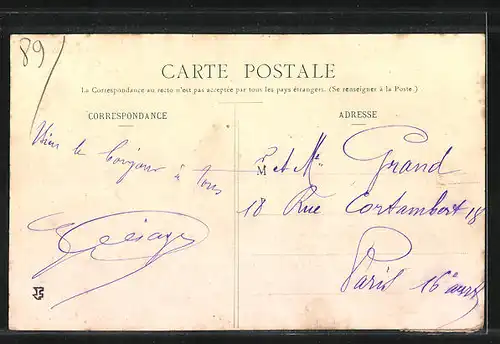 89
CARTE POSTALE
La Correspondance au recto n'est pas acceptée par tous les pays étrangers. (Se renseigner à la Poste.)
CORRESPONDANCE
ADRESSE
Bonjour à tous
M et Me Grand
18 Rue Cortambert 18
Paris 16e